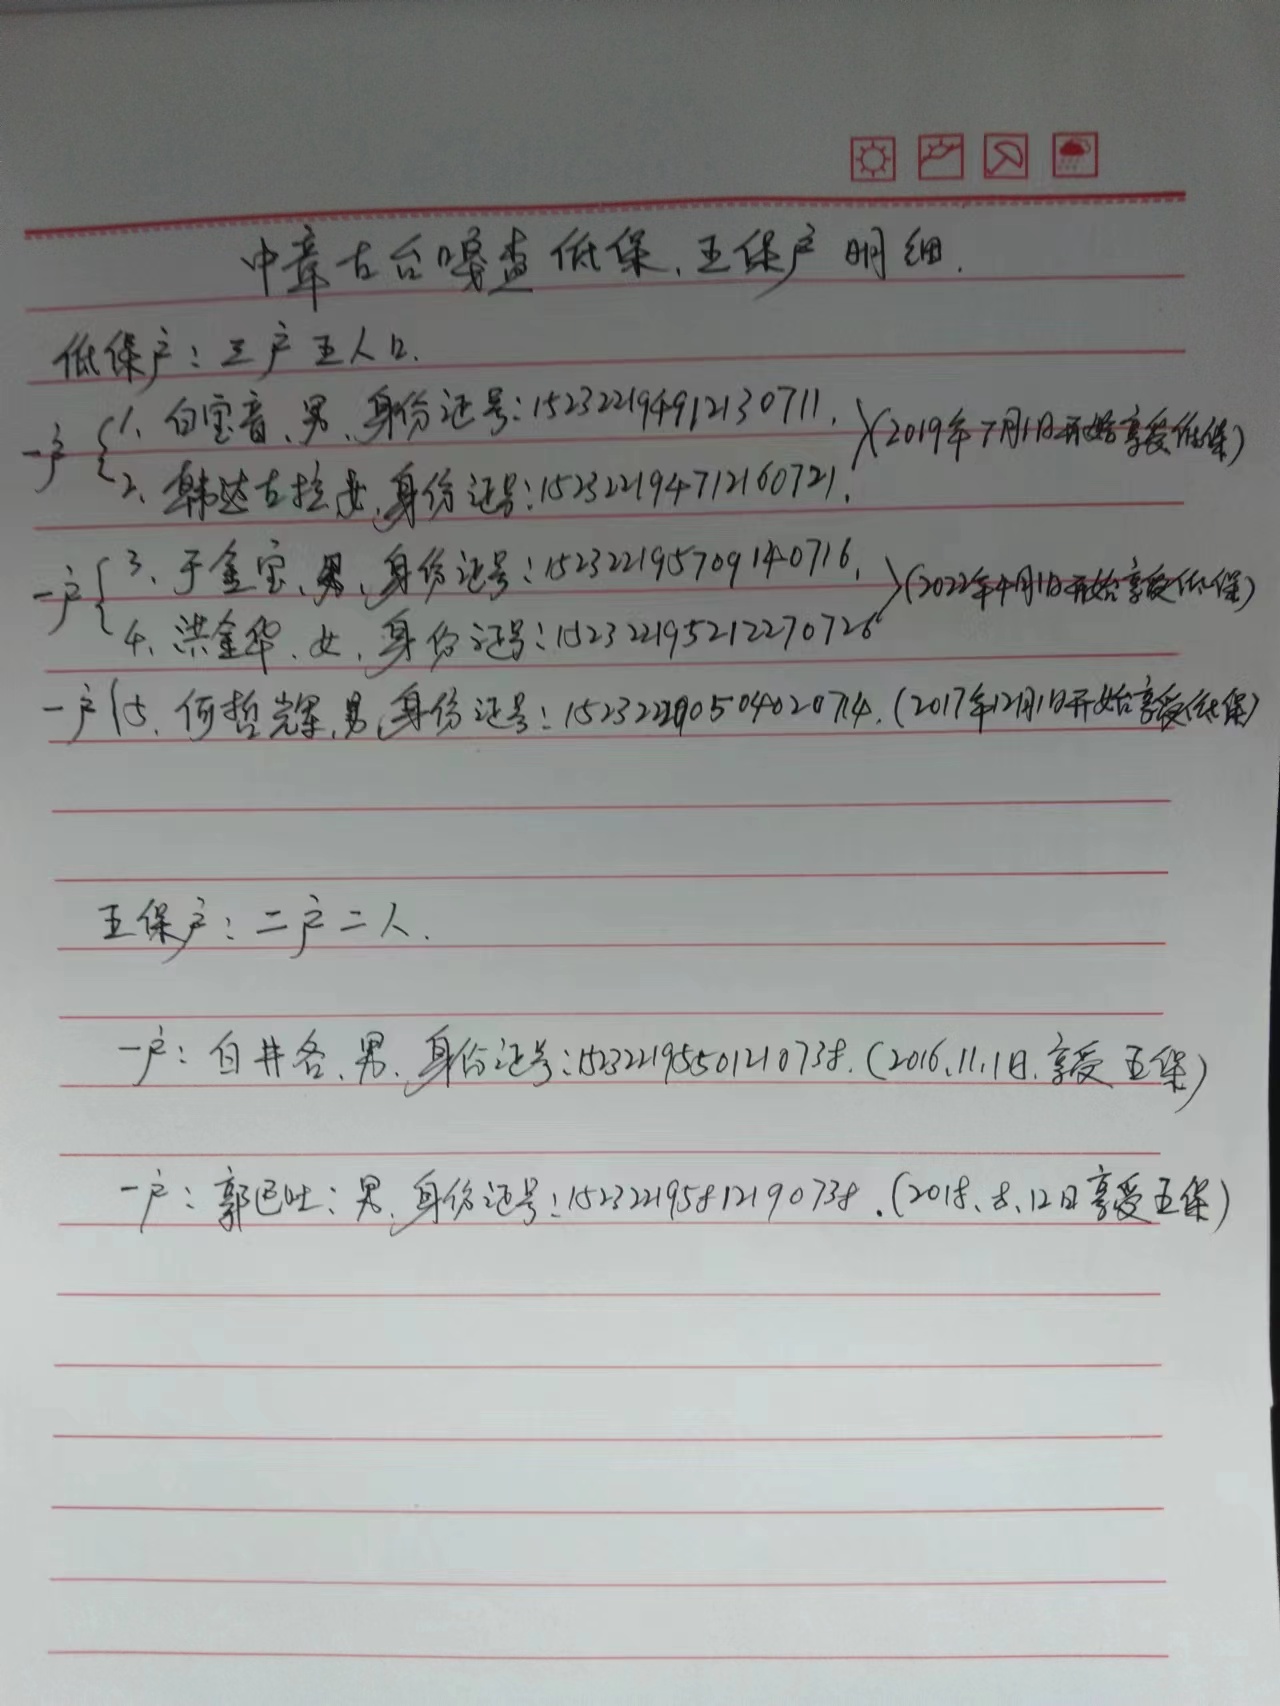 中章古台嘎查低保、五保户明细.
低保户：三户五人口.
一户 1、白宝音、男、身份证号：152322194912130711. (2019年7月1日开始享受低保)
2、韩达古拉 女、身份证号：152322194712160721.
一户 3、于金宝、男、身份证号：152322195709140716. (2022年4月1日开始享受低保)
4、洪金华、女、身份证号：152322195212270726
一户 5、何哲辉、男、身份证号：152322200504020714. (2017年12月1日开始享受低保)
五保户：二户二人.
一户：白井各、男、身份证号：152322195501210738. (2016.11.1日.享受五保)
一户：郭巴吐：男、身份证号：152322195812190738. (2018、8、12日享受五保)